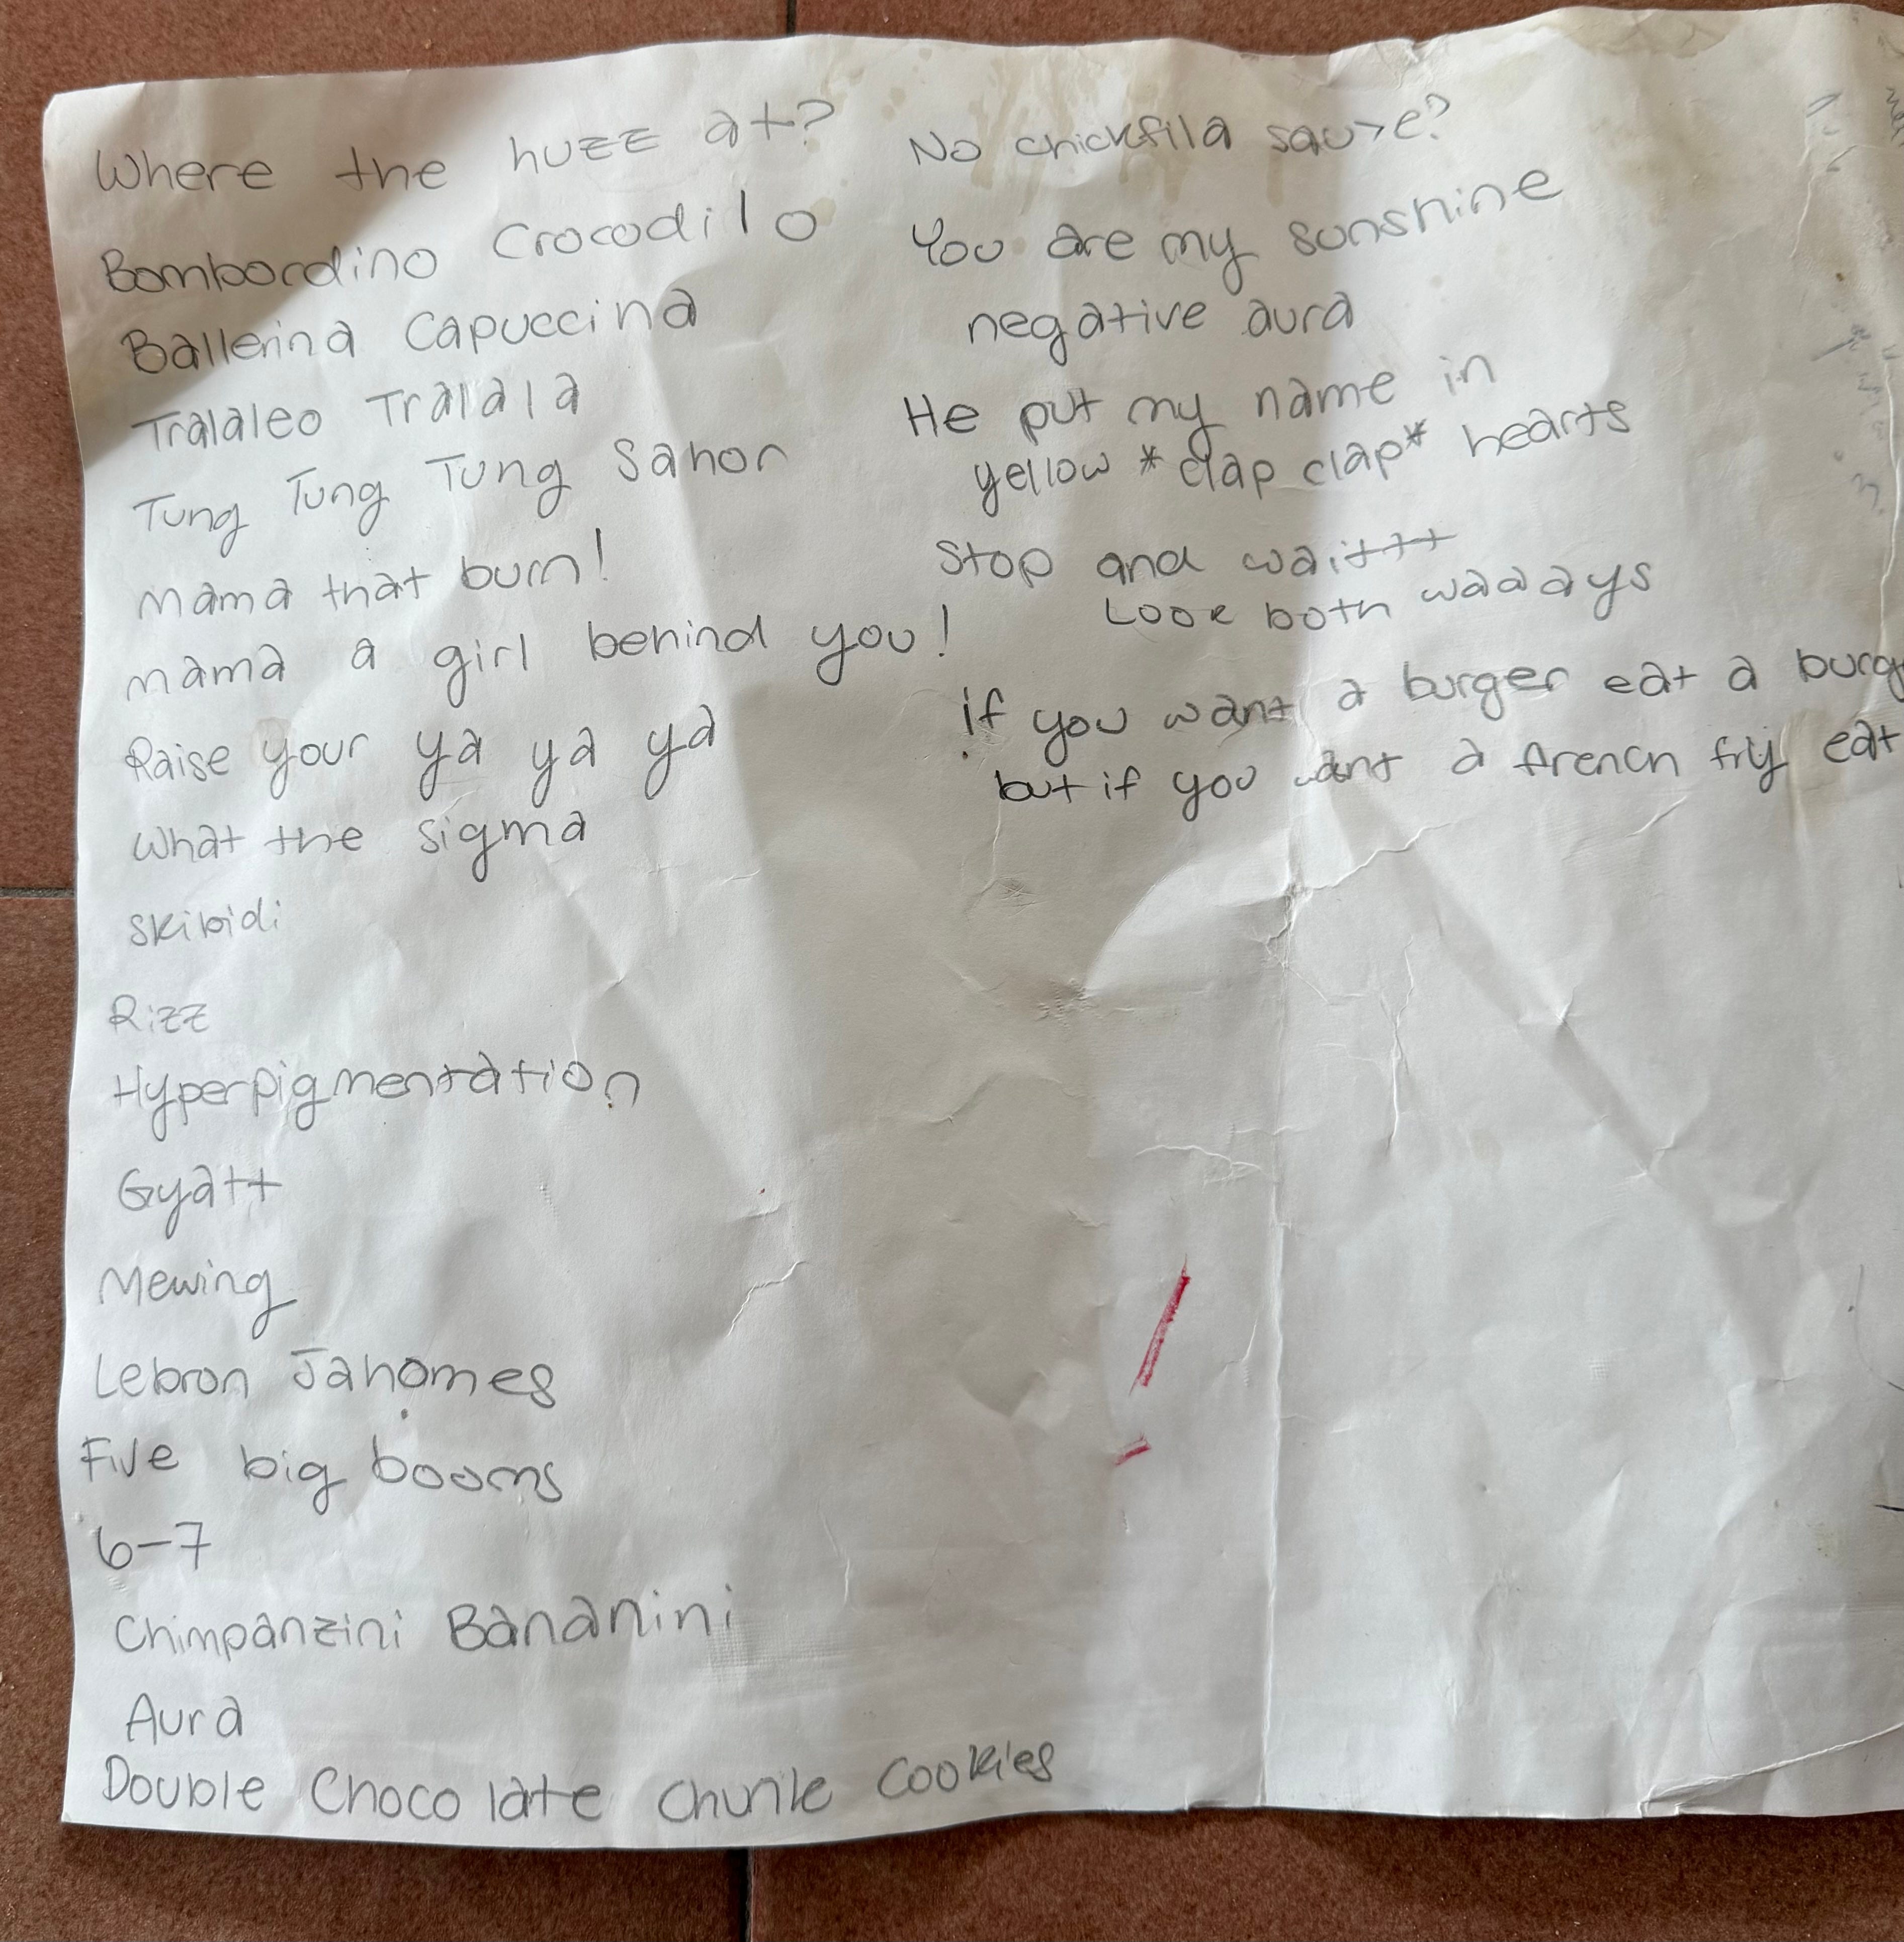 Where the huzz at?
Bombordino Crocodilo
Ballerina Capuccina
Tralaleo Tralala
Tung Tung Tung Sahor
Mama that burn!
mama a girl behind you!
Raise your ya ya ya
What the sigma
Skibidi
Rizz
Hyperpigmentation
Gyatt
Mewing
Lebron Jahomes
Five big booms
6-7
Chimpanzini Bananini
Aura
Double Chocolate Chunk Cookies
No chickfila sause?
You are my sunshine
negative aura
He put my name in
yellow *clap clap* hearts
Stop and waittt
Look both waaays
if you want a burger eat a burg
but if you want a french fry eat